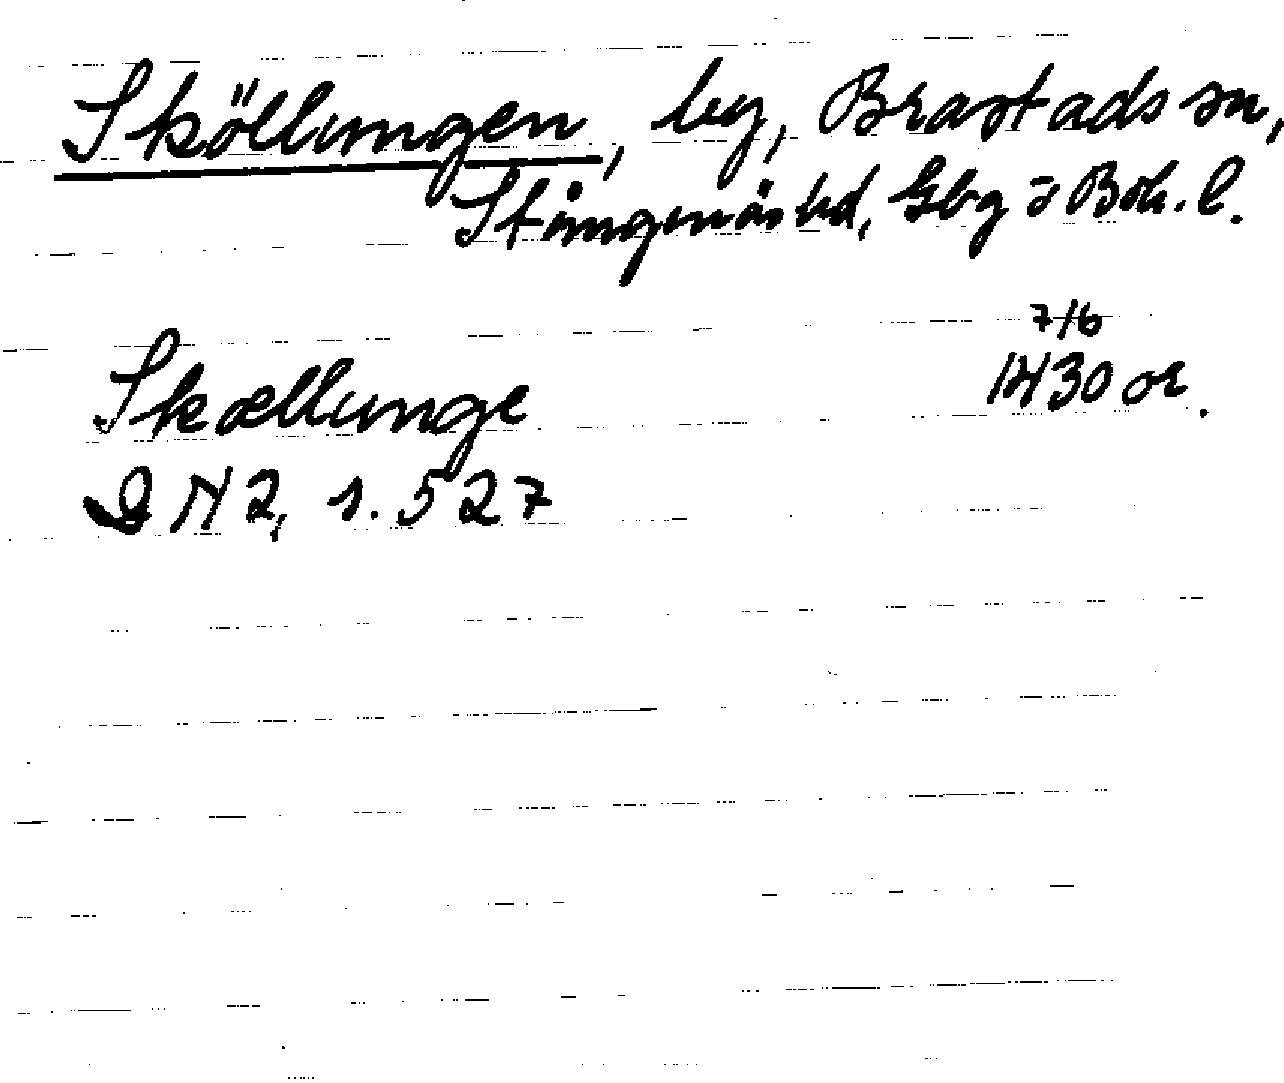 Sköllungen, by, Brastads sn,
Stångenäs hd, Gbg o Boh. l.
7/6
Skællunge 1430 or.
DN2, s. 527